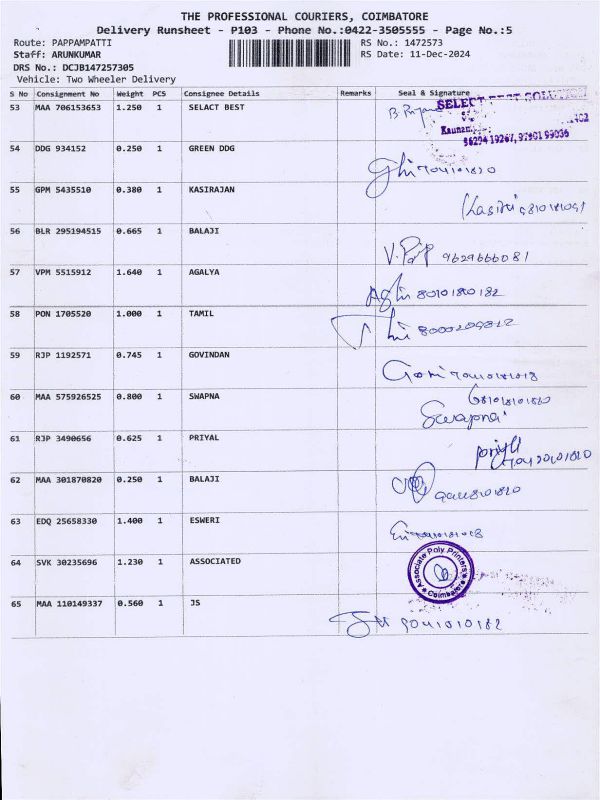 THE PROFESSIONAL COURIERS, COIMBATORE
Delivery Runsheet - P103 - Phone No.:0422-3505555 - Page No.:5
Route: PAPPAMPATTI RS No.: 1472573
Staff: ARUNKUMAR RS Date: 11-Dec-2024
DRS No.: DCJB147257305
Vehicle: Two Wheeler Delivery
S No Consignment No Weight PCS Consignee Details Remarks Seal & Signature
53 MAA 706153653 1.250 1 SELACT BEST
SELECT BEST SOLUTION
54 DDG 934152 0.250 1 GREEN DDG
55 GPM 5435510 0.380 1 KASIRAJAN
56 BLR 295194515 0.665 1 BALAJI
9629666081
57 VPM 5515912 1.640 1 AGALYA
8010180182
58 PON 1705520 1.000 1 TAMIL
59 RJP 1192571 0.745 1 GOVINDAN
60 MAA 575926525 0.800 1 SWAPNA
Swapna
61 RJP 3490656 0.625 1 PRIYAL
62 MAA 301870820 0.250 1 BALAJI
63 EDQ 25658330 1.400 1 ESWERI
64 SVK 30235696 1.230 1 ASSOCIATED
Associate Poly Printers
Coimbatore
65 MAA 110149337 0.560 1 JS